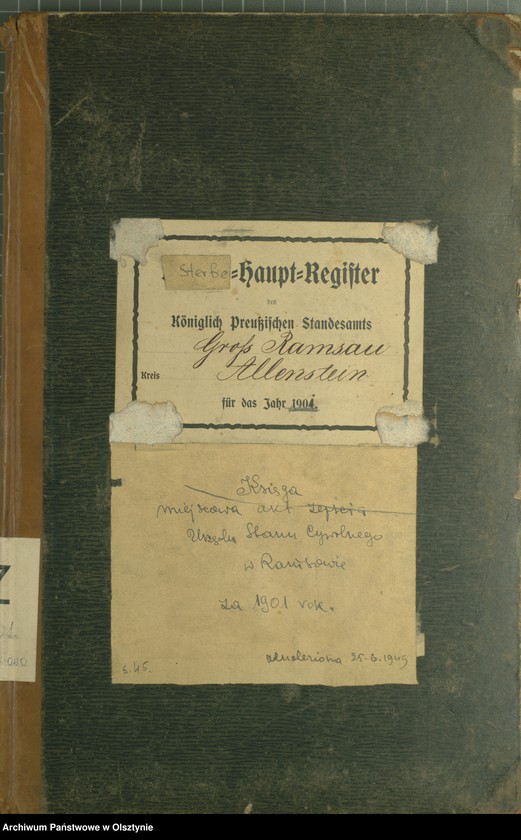 Sterbe-Haupt-Register
des
Königlich Preußischen Standesamts
Groß Ramsau
Kreis Allenstein
für das Jahr 1901.
Księga
miejscowa akt zejścia
Urzędu Stanu Cywilnego
w Ramsowie
za 1901 rok.
odnaleziona 25-6-1949
s. 45.
Z
Archiwum Państwowe w Olsztynie